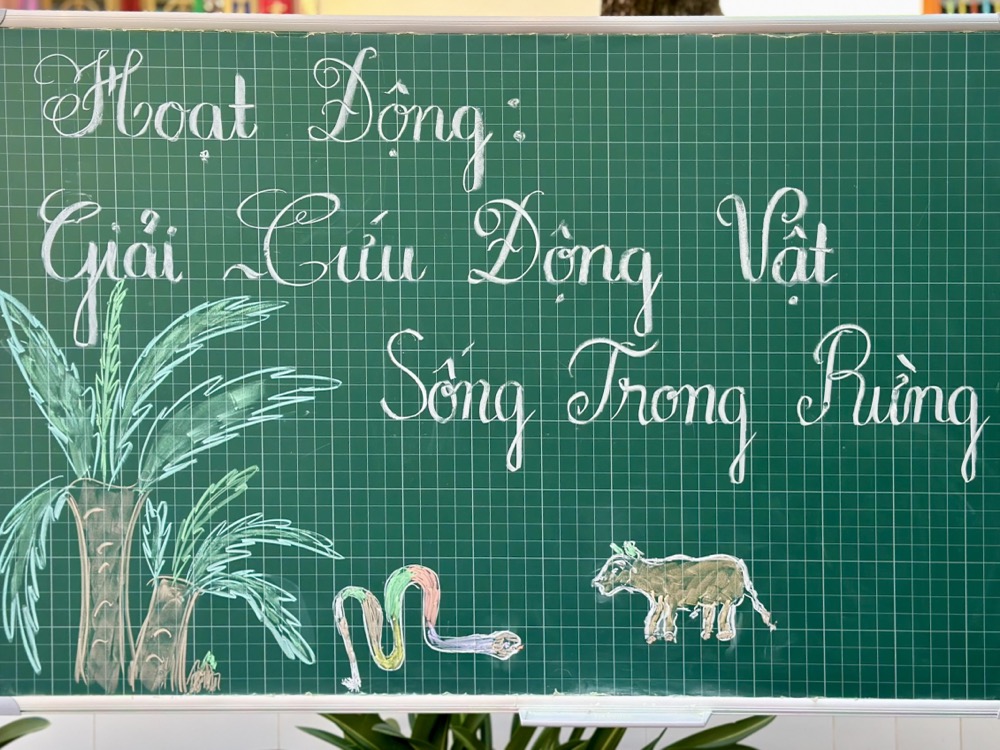 Hoạt Động:
Giải Cứu Động Vật
Sống Trong Rừng